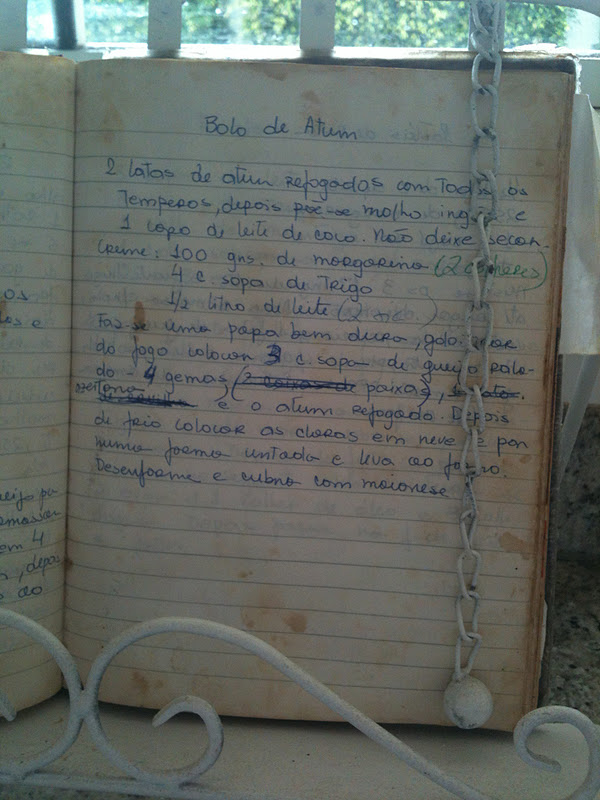 Bolo de Atum
2 latas de atum refogados com Todos os
Temperos, depois põe-se molho inglês e
1 copo de leite de coco. Não deixe secar.
Creme: 100 grs. de margarina (2 colheres)
4 c. sopa de Trigo
1/2 litro de leite (2
Faz-se uma papa bem dura, ao
do fogo colocar 3 c. sopa de queijo rala-
do - 4 gemas) (
azeitona e o atum refogado. Depois
de frio colocar as claras em neve e por
numa forma untada e leva ao forno.
Desenforme e cubra com maionese
os
es e
eijo pa
amassar
em 4
, depois
ao